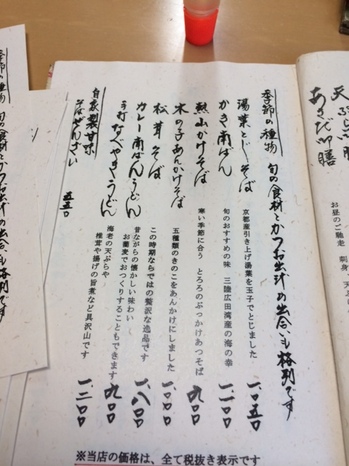 天ぷら
あきた御膳
お昼のご馳走
刺身、天ぷ
季節の種物 旬の食材とかつお出汁の出会いも格別です
湯葉とじそば 京都産引き上げ湯葉を玉子でとじました 一、〇五〇
かき南ばん 旬のおすすめの味 三陸広田湾産の海の幸 一、一〇〇
熱山かけそば 寒い季節に合う とろろのぶっかけあつそば 九〇〇
木の子あんかけそば 五種類のきのこをあんかけにしました 一、〇〇〇
松茸そば この時期ならではの贅沢な逸品です 一、八〇〇
カレー南ばんうどん 昔ながらの懐かしい味わい
お蕎麦でおつくりすることもできます 九〇〇
手打なべやきうどん 海老の天ぷらや
椎茸や揚げの旨煮など具沢山です 一、二〇〇
自家製甘味
そばぜんざい 五五〇
※当店の価格は、全て税抜き表示です
旬の食材とかつお出汁の出会いも格別です